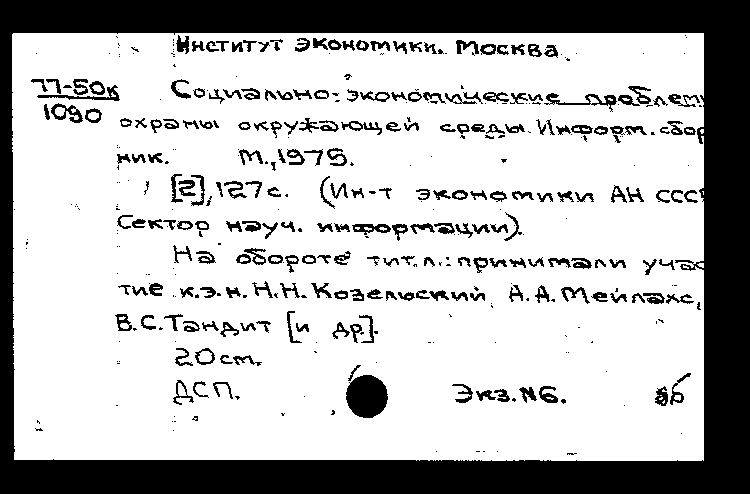 Институт экономики. Москва.
77-50к
1090
Социально-экономические проблемы
охраны окружающей среды. Информ. сбор
ник. М., 1975.
[2], 127с. (Ин-т экономики АН СССР
Сектор науч. информации).
На обороте тит.л.: принимали учас
тие к.э.н. Н.Н. Козельский, А.А. Мейлахс,
В.С. Тандит [и др].
20см.
ДСП. Экз. №6.